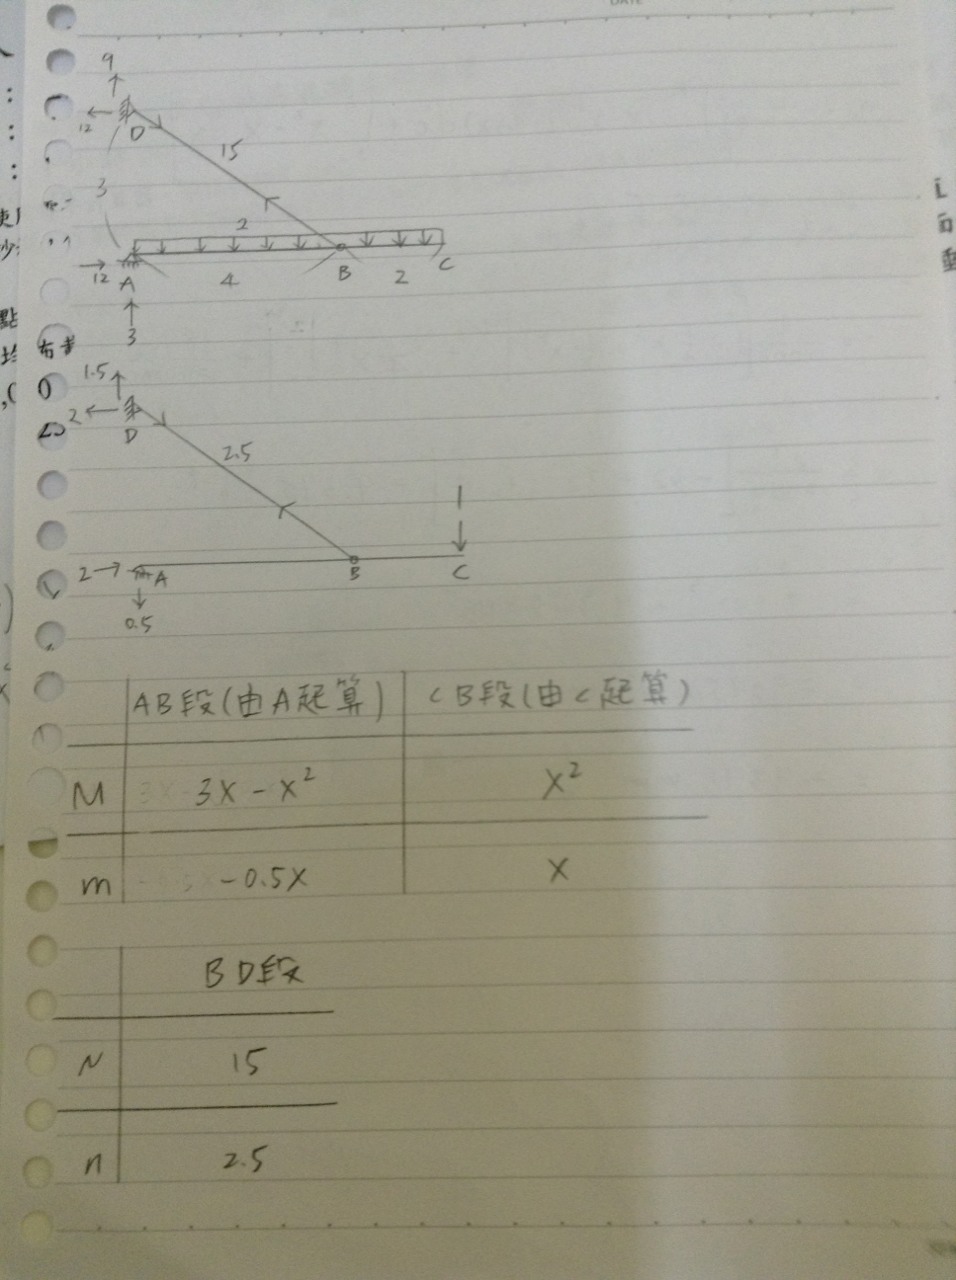 DATE
9
12
D
15
3
2
12
A
4
B
2
C
3
1.5
2
D
2.5
1
2
A
B
C
0.5
AB段(由A起算) CB段(由C起算)
M 3X-X² X²
m -0.5X X
BD段
N 15
n 2.5